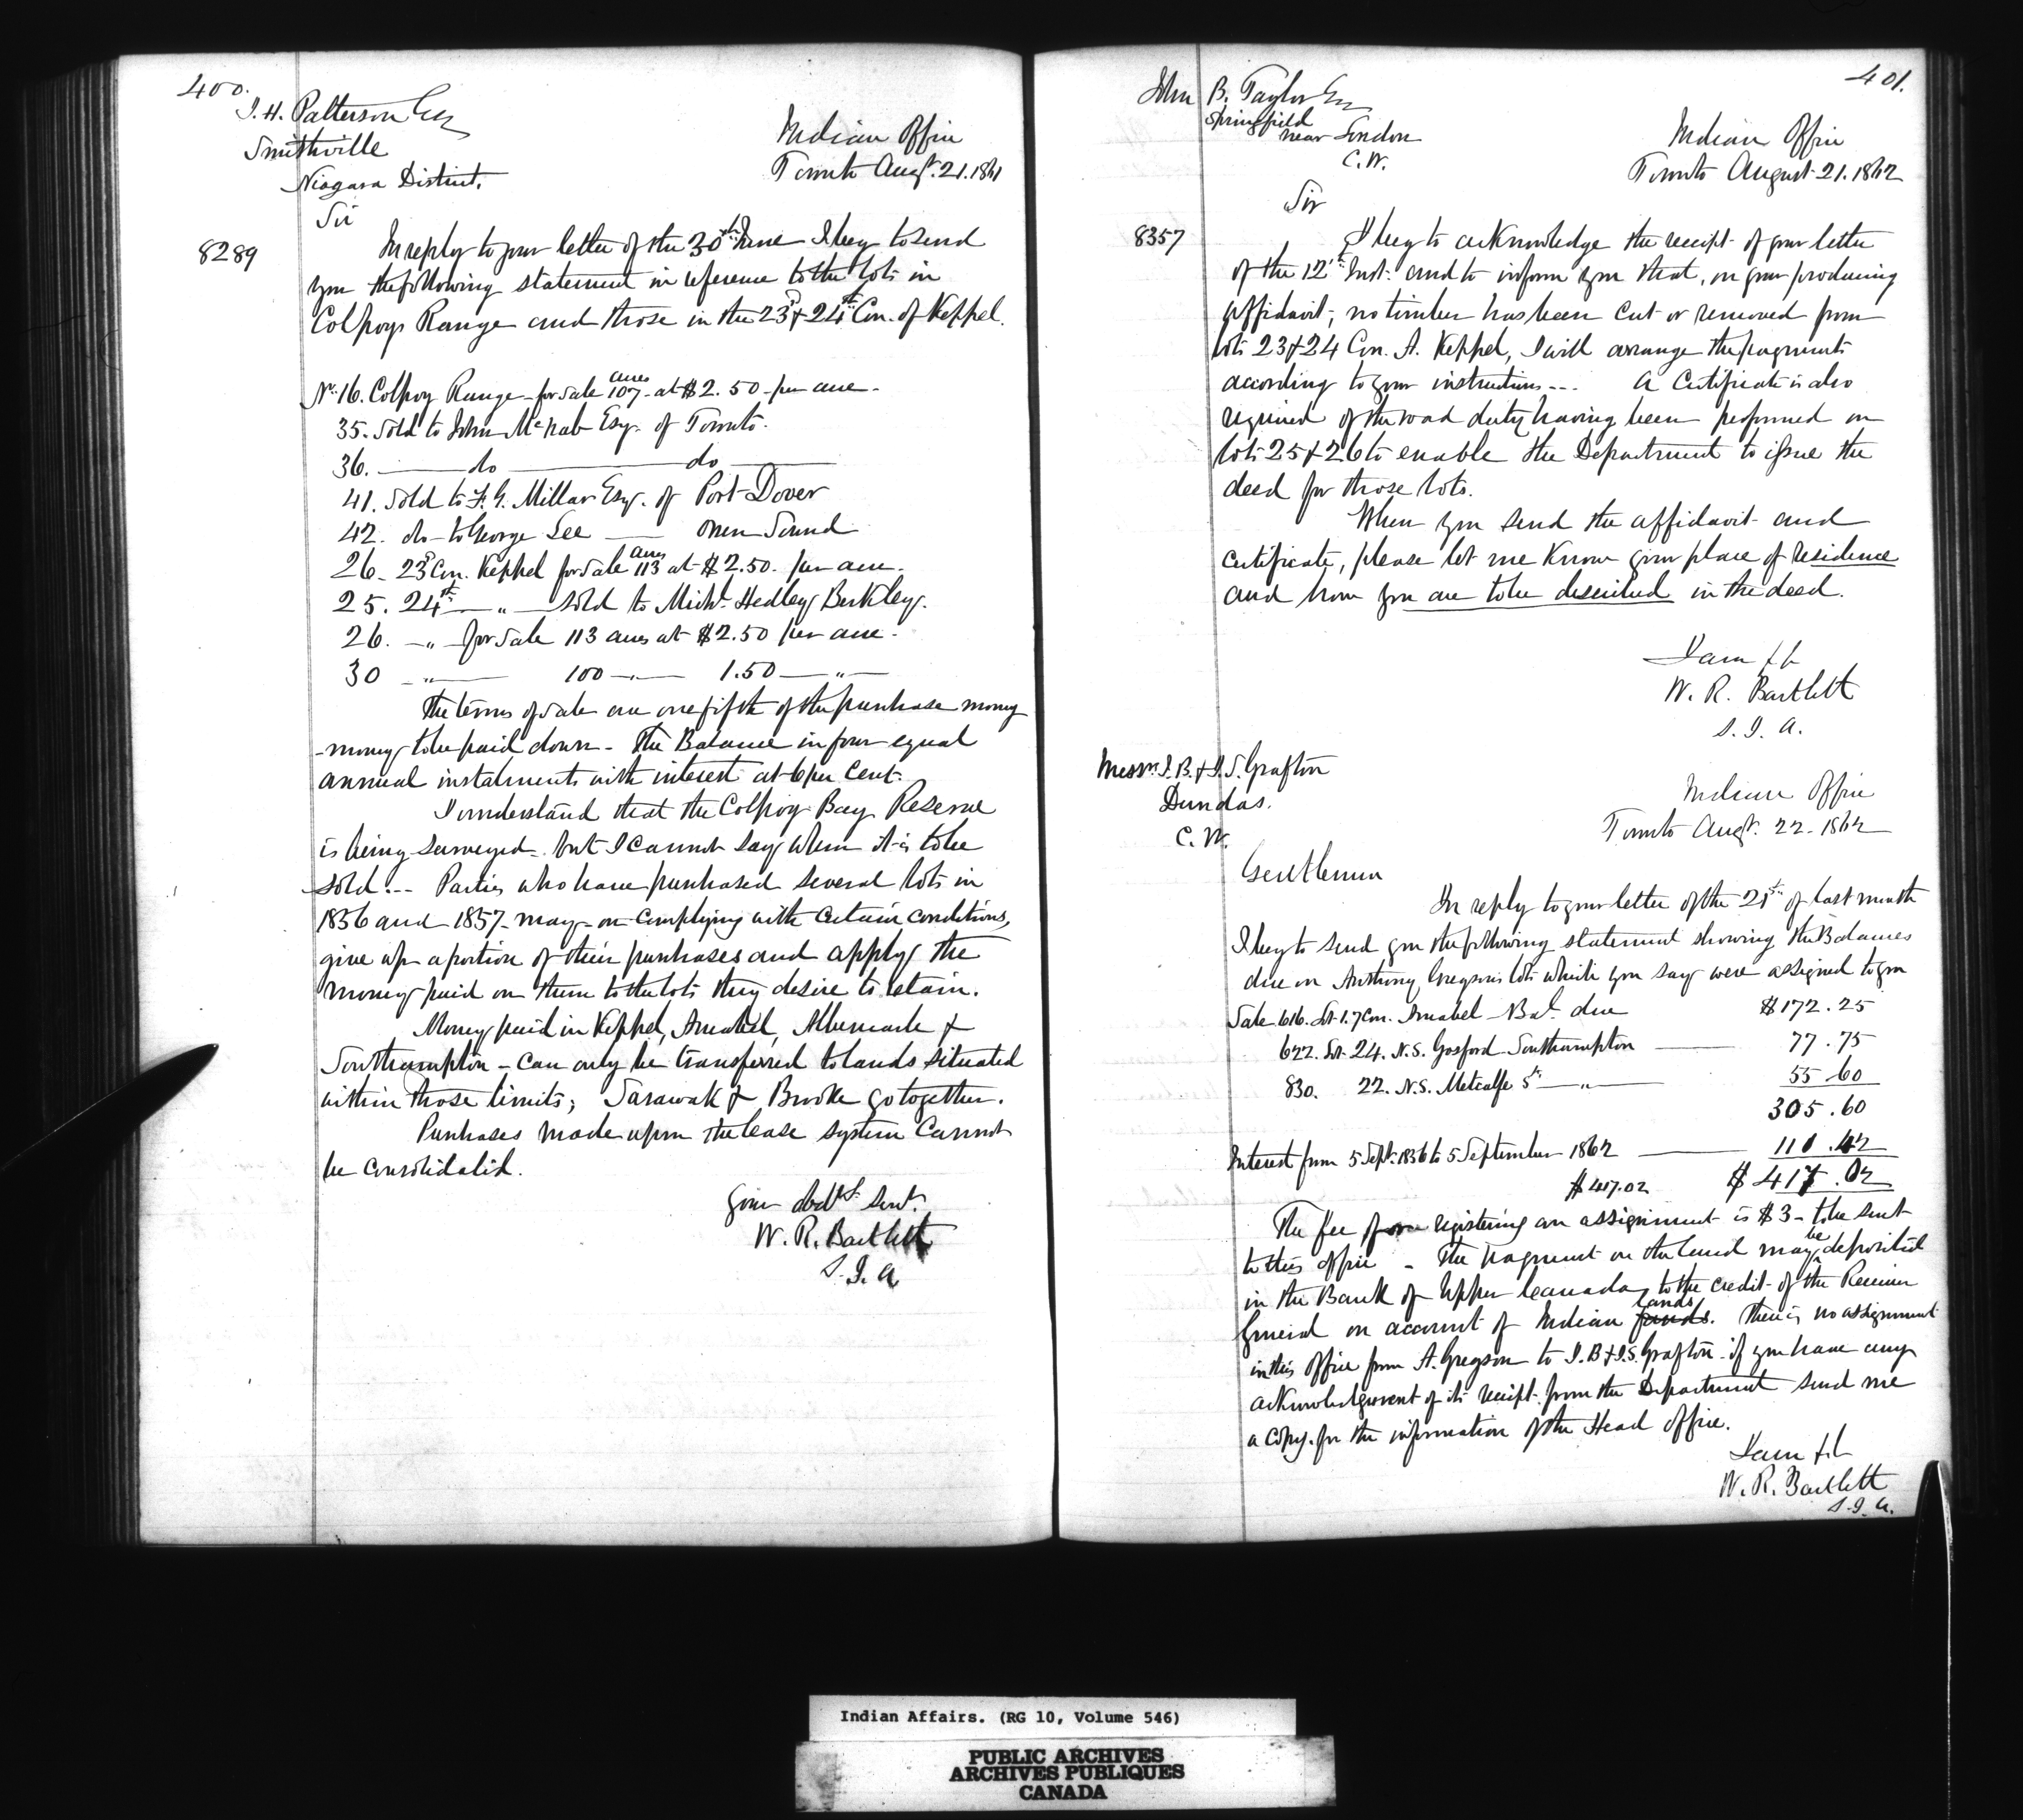 400.
I. H. Patterson Esq
Smithville
Niagara District.
Indian Office
Toronto Augt. 21. 1861
Sir
8289
In reply to your letter of the 30th June I beg to send
you the following statement in reference to the lots in
Colpoys Range and those in the 23d & 24th Con. of Keppel.
No. 16. Colpoy Range - for Sale 107 acres at $2.50 per acre -
35. Sold to John McNab Esq. of Toronto.
36. —— do —— do ——
41. Sold to F. G. Millar Esq. of Port Dover
42. do - to George Lee —— Owen Sound
26 - 23d Con. Keppel for Sale 113 acres at $2.50. per acre.
25. 24th — " — Sold to Michl. Hedley Berkley.
26. — " — for Sale 113 acres at $2.50 per acre.
30 — " — 100 — " — 1.50 — " —
The terms of sale are one fifth of the purchase money
- money to be paid down - The Balance in four equal
annual instalments with interest at 6 per Cent.
I understand that the Colpoy Bay Reserve
is being surveyed - but I cannot say when it is to be
sold. -- Parties who have purchased several lots in
1856 and 1857 - may - on complying with certain conditions,
give up a portion of their purchases and apply the
money paid on them to the lots they desire to retain.
Money paid in Keppel, Amabel, Albemarle &
Southampton - can only be transferred to lands situated
within those limits; Sarawak & Brooke go together.
Purchases made upon the lease system Cannot
be consolidated.
Your obdt. Servt.
W. R. Bartlett
S. I. A
401.
John B. Taylor Esq
Springfield
near London
C. W.
Indian Office
Toronto August 21. 1862
Sir
8357
I beg to acknowledge the receipt of your letter
of the 12th Inst. and to inform you that, on your producing
affidavit, no timber has been cut or removed from
lots 23 & 24 Con. A. Keppel, I will arrange the payments
according to your instructions --- A Certificate is also
required of the road duty having been performed on
lots 25 & 26 to enable the Department to issue the
deed for those lots.
When you send the affidavit and
certificate, please let me know your place of residence
and how you are to be described in the deed.
I am &c
W. R. Bartlett
S. I. A.
Messrs. J. B. & J. S. Grafton
Dundas.
C. W.
Indian Office
Toronto Augt. 22 - 1862
Gentlemen
In reply to your letter of the 21st of last month
I beg to send you the following statement showing the Balances
due on Anthony Gregson's lots which you say were assigned to you
Sale 616. Lot 1. 7 Con. Amabel - Bal. due $172.25
622. Lot 24. N.S. Gosford Southampton —— 77.75
830. 22. N.S. Metcalfe St — " —— 55 60
305.60
Interest from 5 Sept. 1856 to 5 September 1862 —— 110.42
$417.02 $417.02
The fee for registering an assignment is $3 - to be sent
to this office - The payment on the land may be deposited
in the Bank of Upper Canada, to the credit of the Receiver
General on account of Indian funds lands. There is no assignment
in this office from A. Gregson to J. B & J. S. Grafton - if you have any
acknowledgment of its receipt from the Department send me
a copy for the information of the Head Office.
I am &c
W. R. Bartlett
S. I. A.
Indian Affairs. (RG 10, Volume 546)
PUBLIC ARCHIVES
ARCHIVES PUBLIQUES
CANADA